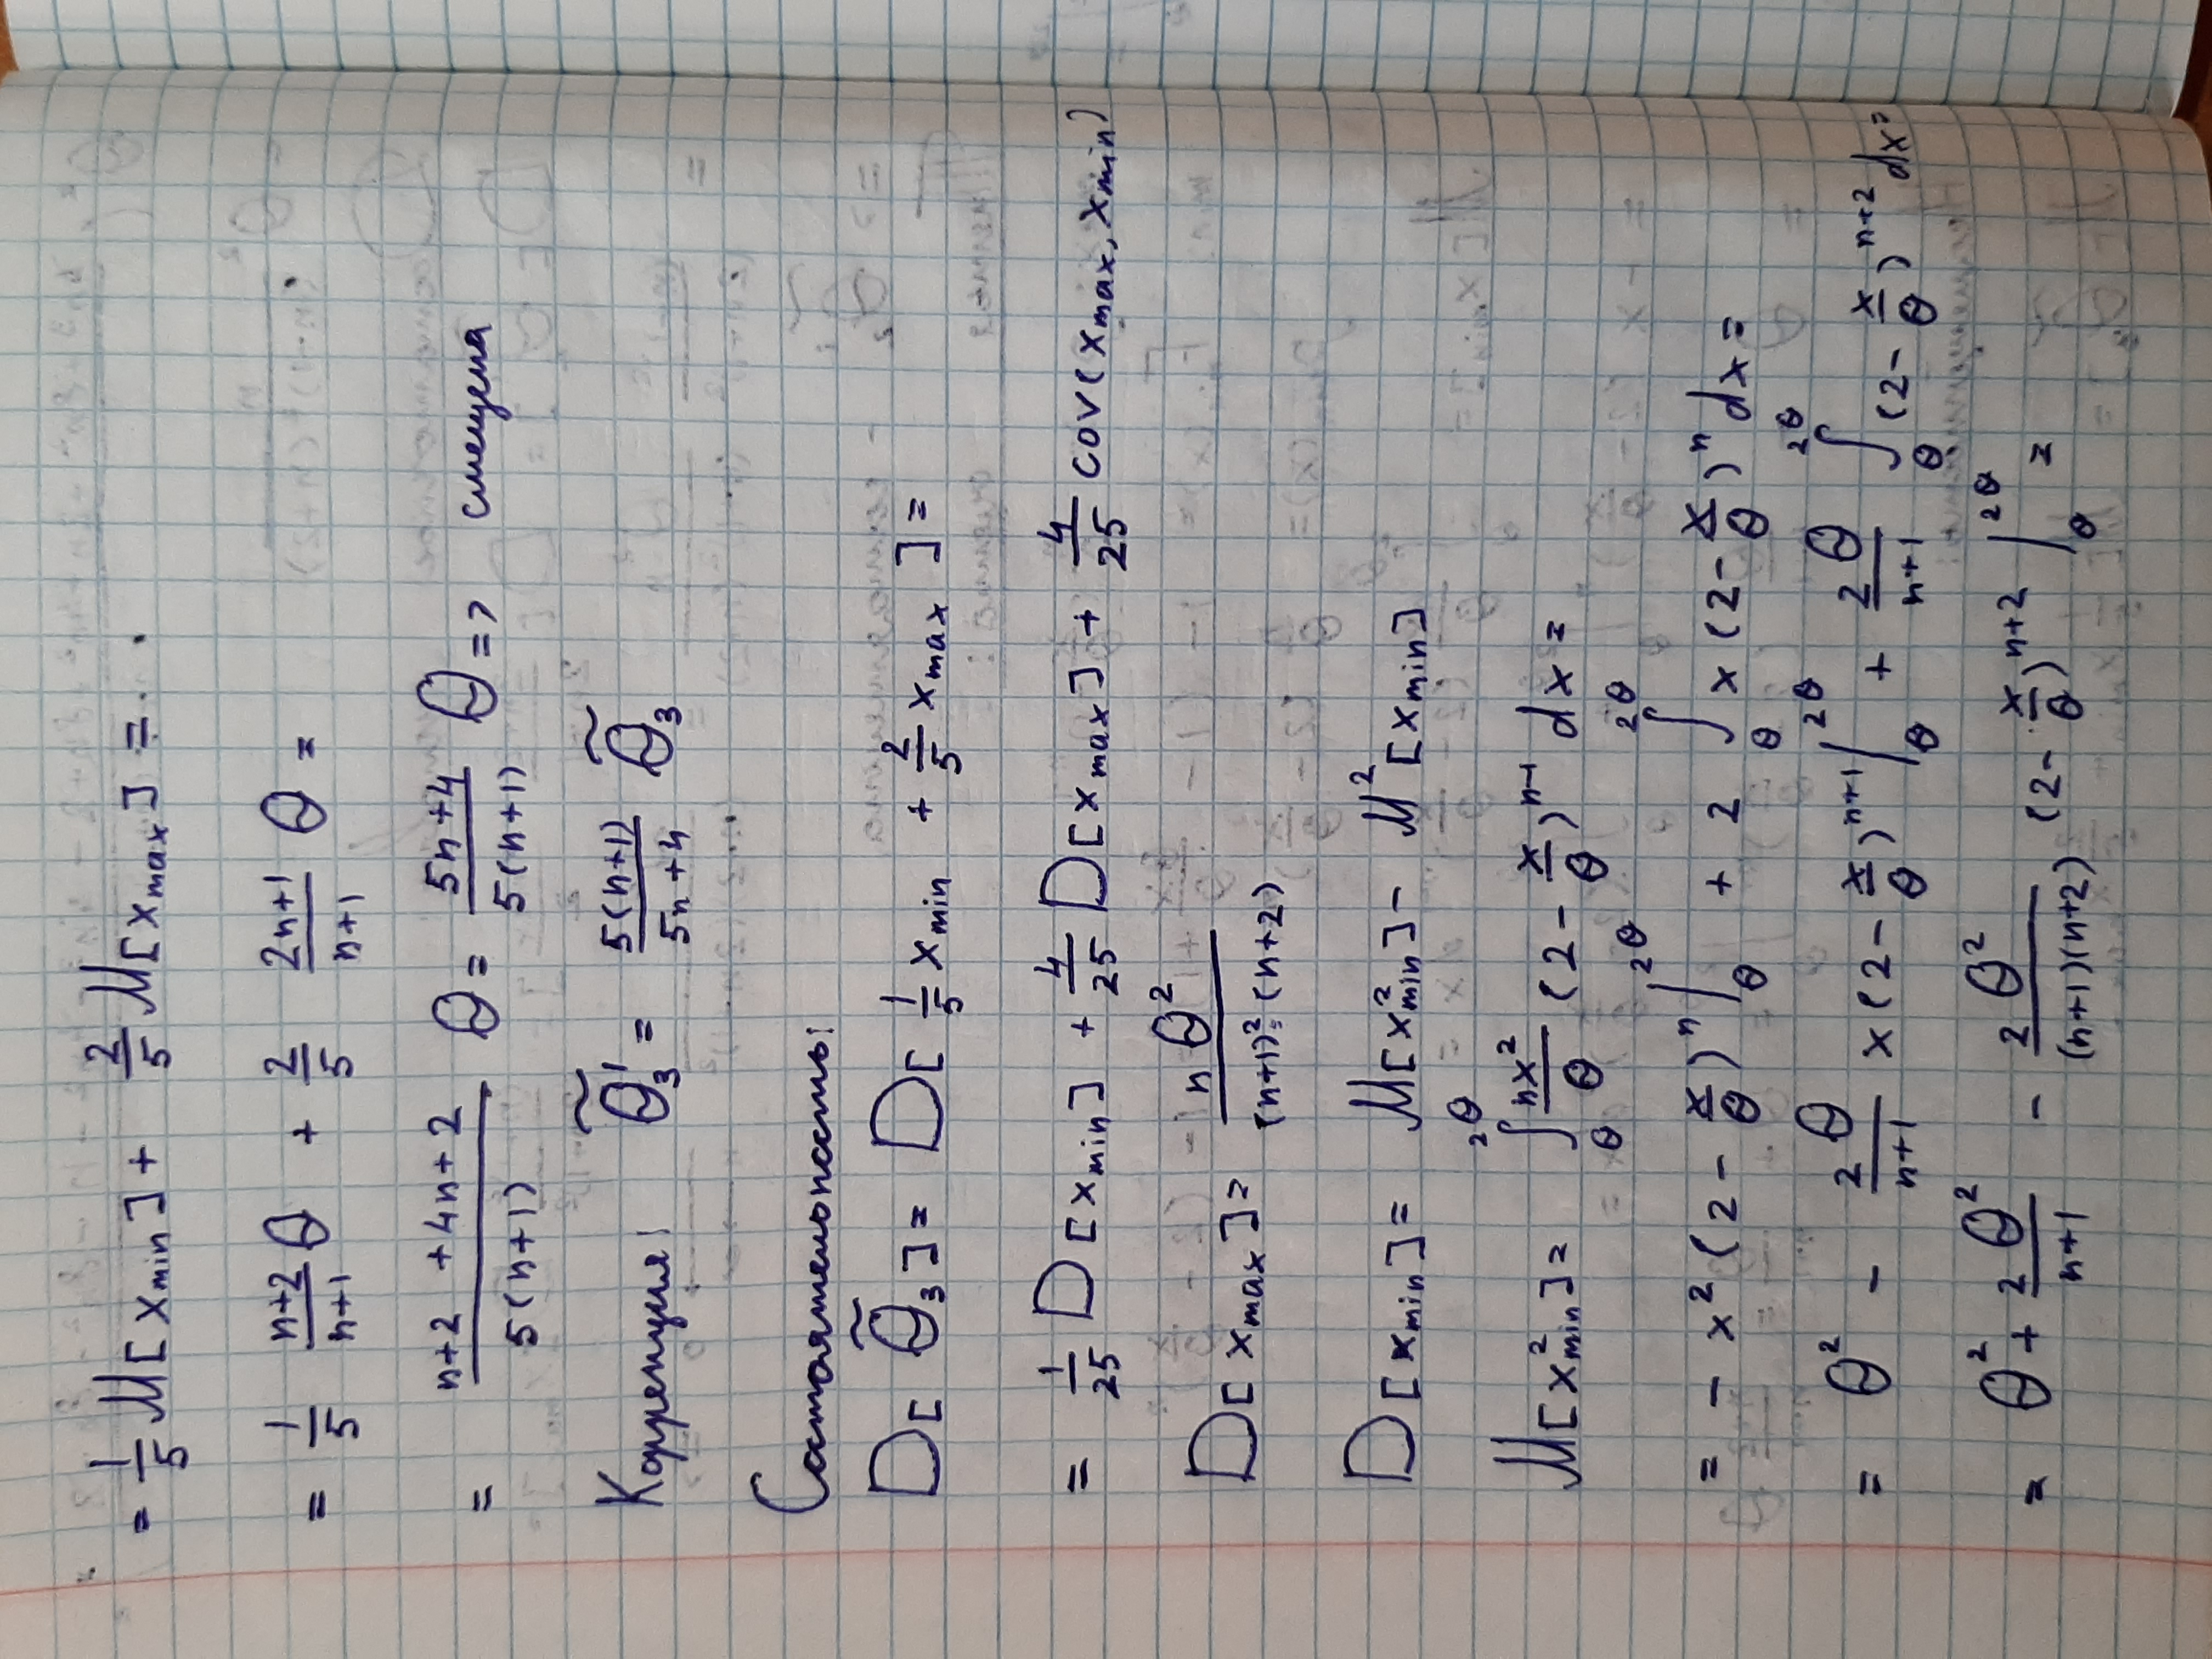 = 1/5 M[x_min] + 2/5 M[x_max] =
= 1/5 (n+2)/(n+1) θ + 2/5 (2n+1)/(n+1) θ =
= (n+2 +4n+2)/(5(n+1)) θ = (5n+4)/(5(n+1)) θ => смещена
Коррекция: θ̃₃' = (5(n+1))/(5n+4) θ̃₃
Состоятельность:
D[θ̃₃] = D[1/5 x_min + 2/5 x_max] =
= 1/25 D[x_min] + 4/25 D[x_max] + 4/25 cov(x_max, x_min)
D[x_max] = nθ²/((n+1)²·(n+2))
D[x_min] = M[x²_min] - M²[x_min]
M[x²_min] = ∫_θ^{2θ} nx²/θ (2 - x/θ)^{n-1} dx =
= - x² (2 - x/θ)^n |_θ^{2θ} + 2 ∫_θ^{2θ} x (2 - x/θ)^n dx =
= θ² - 2θ/(n+1) x (2 - x/θ)^{n+1} |_θ^{2θ} + 2θ/(n+1) ∫_θ^{2θ} (2 - x/θ)^{n+2} dx =
= θ² + 2θ²/(n+1) - 2θ²/((n+1)(n+2)) (2 - x/θ)^{n+2} |_θ^{2θ} =